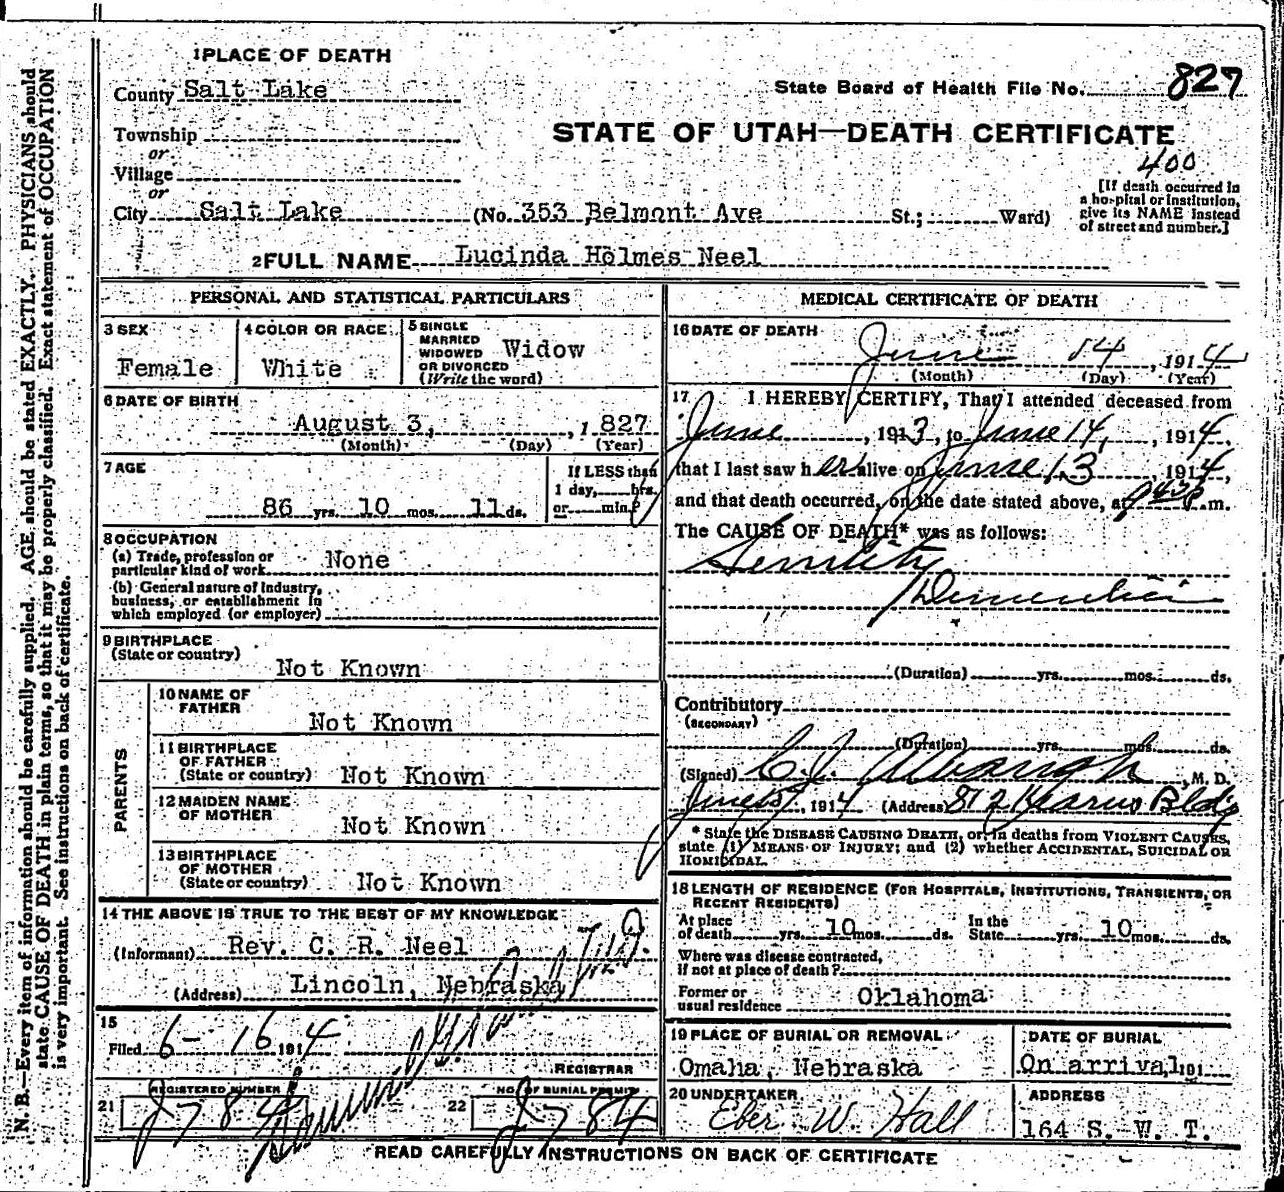 1 PLACE OF DEATH
County Salt Lake
State Board of Health File No. 827
Township
or
Village
or
STATE OF UTAH—DEATH CERTIFICATE
400
[If death occurred in
a hospital or institution,
give its NAME instead
of street and number.]
City Salt Lake (No. 353 Belmont Ave St.; Ward)
2 FULL NAME Lucinda Holmes Neel
PERSONAL AND STATISTICAL PARTICULARS
3 SEX
Female
4 COLOR OR RACE
White
5 SINGLE
MARRIED
WIDOWED
OR DIVORCED
(Write the word)
Widow
6 DATE OF BIRTH
August 3, , 1 827
(Month) (Day) (Year)
7 AGE
86 yrs. 10 mos. 11 ds.
If LESS than
1 day, hrs.
or min.?
8 OCCUPATION
(a) Trade, profession or
particular kind of work None
(b) General nature of industry,
business, or establishment in
which employed (or employer)
9 BIRTHPLACE
(State or country)
Not Known
PARENTS
10 NAME OF
FATHER
Not Known
11 BIRTHPLACE
OF FATHER
(State or country) Not Known
12 MAIDEN NAME
OF MOTHER
Not Known
13 BIRTHPLACE
OF MOTHER
(State or country) Not Known
14 THE ABOVE IS TRUE TO THE BEST OF MY KNOWLEDGE
(Informant) Rev. C. R. Neel
(Address) Lincoln, Nebraska
15
Filed 6- 16 , 1914
REGISTRAR
REGISTERED NUMBER
21 J 784
NO. OF BURIAL PERMIT
22 J 784
MEDICAL CERTIFICATE OF DEATH
16 DATE OF DEATH
June 14 , 1914
(Month) (Day) (Year)
17 I HEREBY CERTIFY, That I attended deceased from
June , 1913, to June 14, , 1914,
that I last saw her alive on June 13 , 1914,
and that death occurred, on the date stated above, at m.
The CAUSE OF DEATH* was as follows:
Senility
Dementia
(Duration) yrs. mos. ds.
Contributory
(SECONDARY)
(Duration) yrs. mos. ds.
(Signed) C. J. Albaugh , M. D.
June , 1914 (Address) 812 Kearns Bldg
* State the DISEASE CAUSING DEATH, or, in deaths from VIOLENT CAUSES,
state (1) MEANS OF INJURY; and (2) whether ACCIDENTAL, SUICIDAL OR
HOMICIDAL.
18 LENGTH OF RESIDENCE (FOR HOSPITALS, INSTITUTIONS, TRANSIENTS, OR
RECENT RESIDENTS)
At place
of death yrs. 10 mos. ds. In the
State yrs. 10 mos. ds.
Where was disease contracted,
if not at place of death?
Former or
usual residence Oklahoma
19 PLACE OF BURIAL OR REMOVAL
Omaha, Nebraska
DATE OF BURIAL
On arrival, 191
20 UNDERTAKER
Eber W. Hall
ADDRESS
164 S. W. T.
READ CAREFULLY INSTRUCTIONS ON BACK OF CERTIFICATE
N. B.—Every item of information should be carefully supplied. AGE should be stated EXACTLY. PHYSICIANS should
state CAUSE OF DEATH in plain terms, so that it may be properly classified. Exact statement of OCCUPATION
is very important. See instructions on back of certificate.